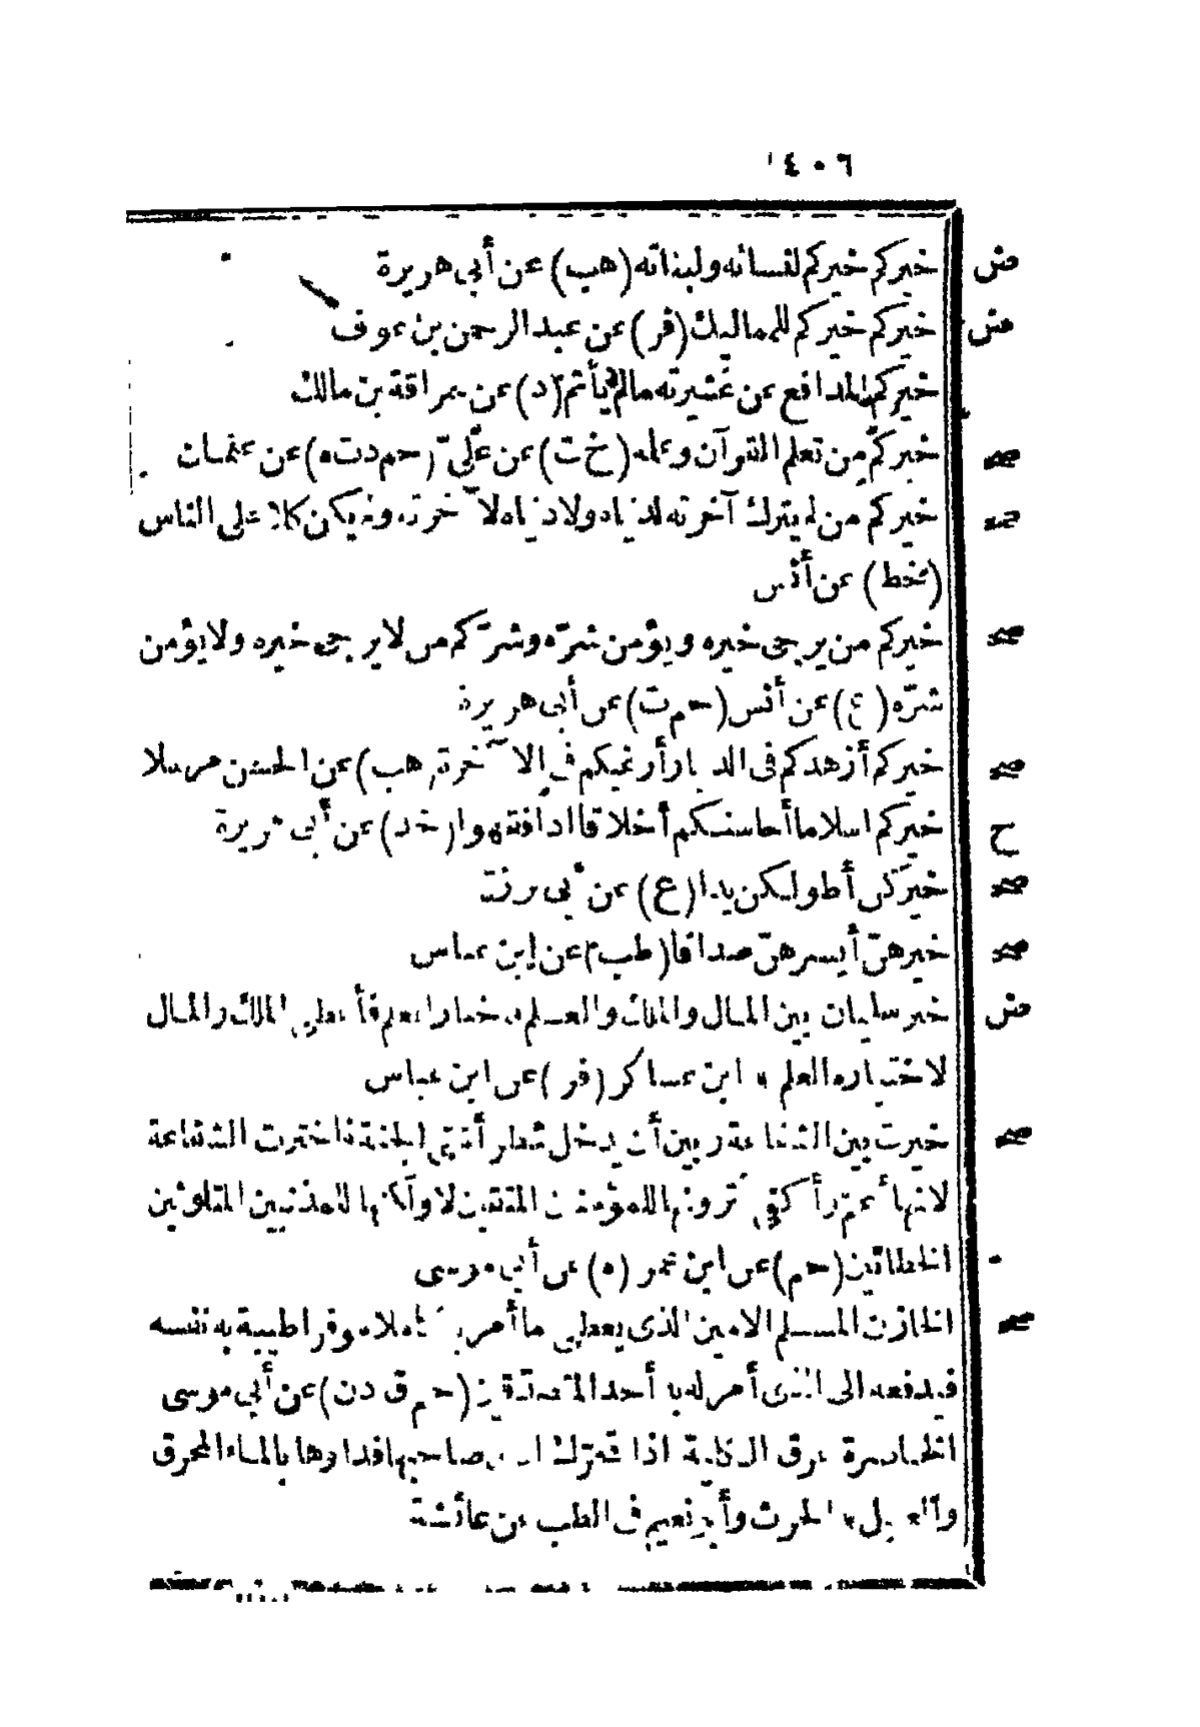 ٤٠٦
ض خيركم خيركم لنسائه ولبناته (هب) عن أبى هريرة
ض خيركم خيركم للمماليك (فر) عن عبد الرحمن بن عوف
خيركم المدافع عن عشيرته مالم يأثم (د) عن سراقة بن مالك
صح خيركم من تعلم القرآن وعلمه (خ ت) عن علىّ (حم د ت ه) عن عثمان
صح خيركم من لم يترك آخرته لدنياه ولا دنياه لآخرته ولم يكن كلا على الناس
(خط) عن أنس
صح خيركم من يرجى خيره ويؤمن شرّه وشرّكم من لا يرجى خيره ولا يؤمن
شرّه (ع) عن أنس (حم ت) عن أبى هريرة
صح خيركم أزهدكم فى الدنيا وأرغبكم فى الآخرة (هب) عن الحسن مرسلا
ح خيركم اسلاما أحاسنكم أخلاقا اذا فقهوا (خد) عن أبى هريرة
صح خيركنّ أطولكن يدا (ع) عن أبى برزة
صح خيرهنّ أيسرهنّ صداقا (طب) عن ابن عباس
ض خير سليمان بين المال والملك والعلم فاختار العلم فأعطى الملك والمال
لاختياره العلم * ابن عساكر (فر) عن ابن عباس
صح خيرت بين الشفاعة وبين أن يدخل شطر أمتى الجنة فاخترت الشفاعة
لانها أعمّ وأكفى أترونها للمؤمنين المتقين لا ولكنها للمذنبين المتلوثين
الخطائين (حم) عن ابن عمر (ه) عن أبى موسى
صح الخازن المسلم الامين الذى يعطى ما أمر به كاملا موفرا طيبة به نفسه
فيدفعه الى الذى أمر له به أحد المتصدقين (حم ق د ن) عن أبى موسى
الخاصرة عرق الكلية اذا تحرّك آذى صاحبها فداوها بالماء المحرق
والعسل * الحرث وأبو نعيم فى الطب عن عائشة